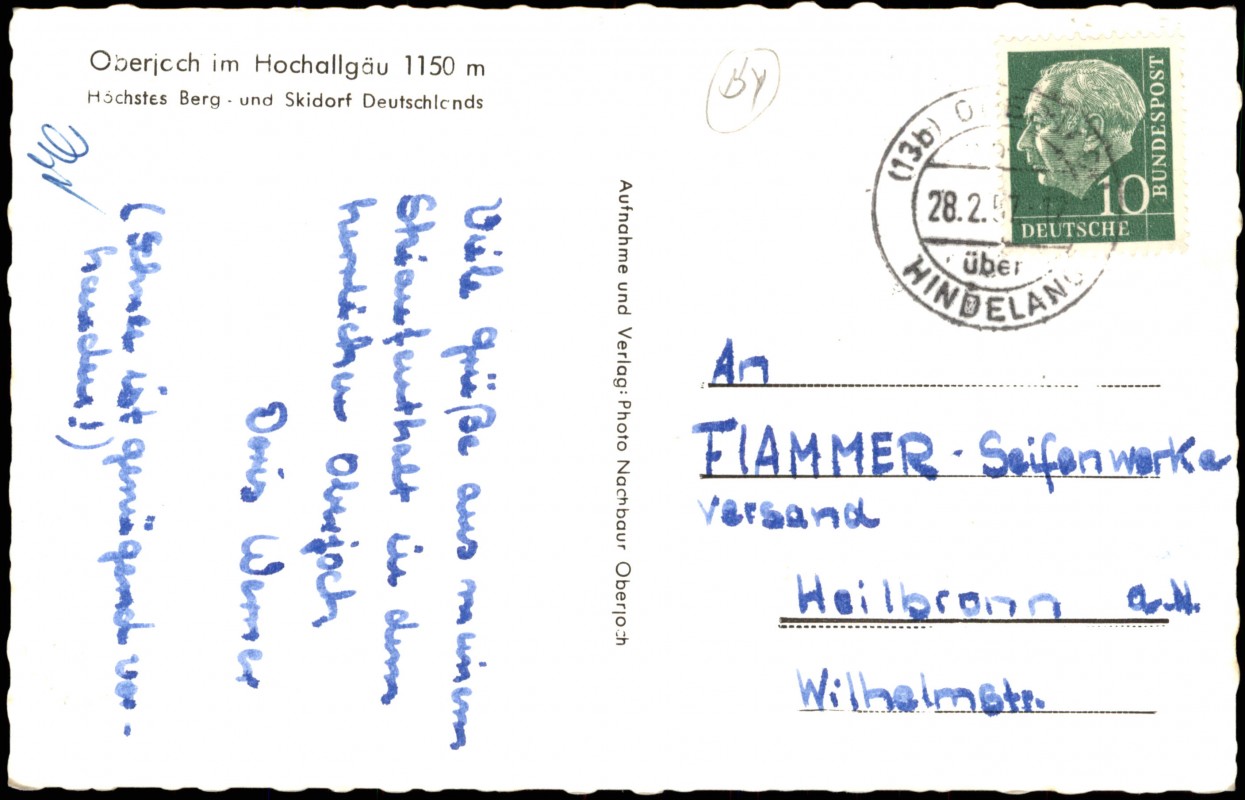 Oberjoch im Hochallgäu 1150 m
Höchstes Berg- und Skidorf Deutschlands
Viele Grüße aus meinem
Skiaufenthalt in dem
herrlichen Oberjoch
Dein Werner
(Schnee ist genügend vor-
handen!)
Aufnahme und Verlag: Photo Nachbaur Oberjoch
BY
(13b)
28.2.57
über
HINDELANG
10
BUNDESPOST
DEUTSCHE
An
FLAMMER - Seifenwerke
versand
Heilbronn a.N.
Wilhelmstr.